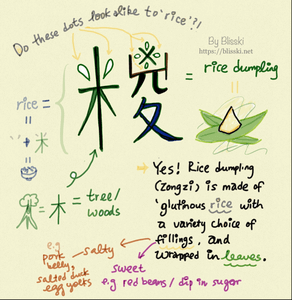 Do these dots look alike to 'rice'?!
By Blisski
https://blisski.net
糉 = rice dumpling
rice =
米
木 = tree/
woods
Yes! Rice dumpling
(Zongzi) is made of
glutinous rice with
a variety choice of
fillings, and
wrapped in leaves.
salty
e.g
pork
belly,
salted duck
egg yolks
sweet
e.g red beans / dip in sugar